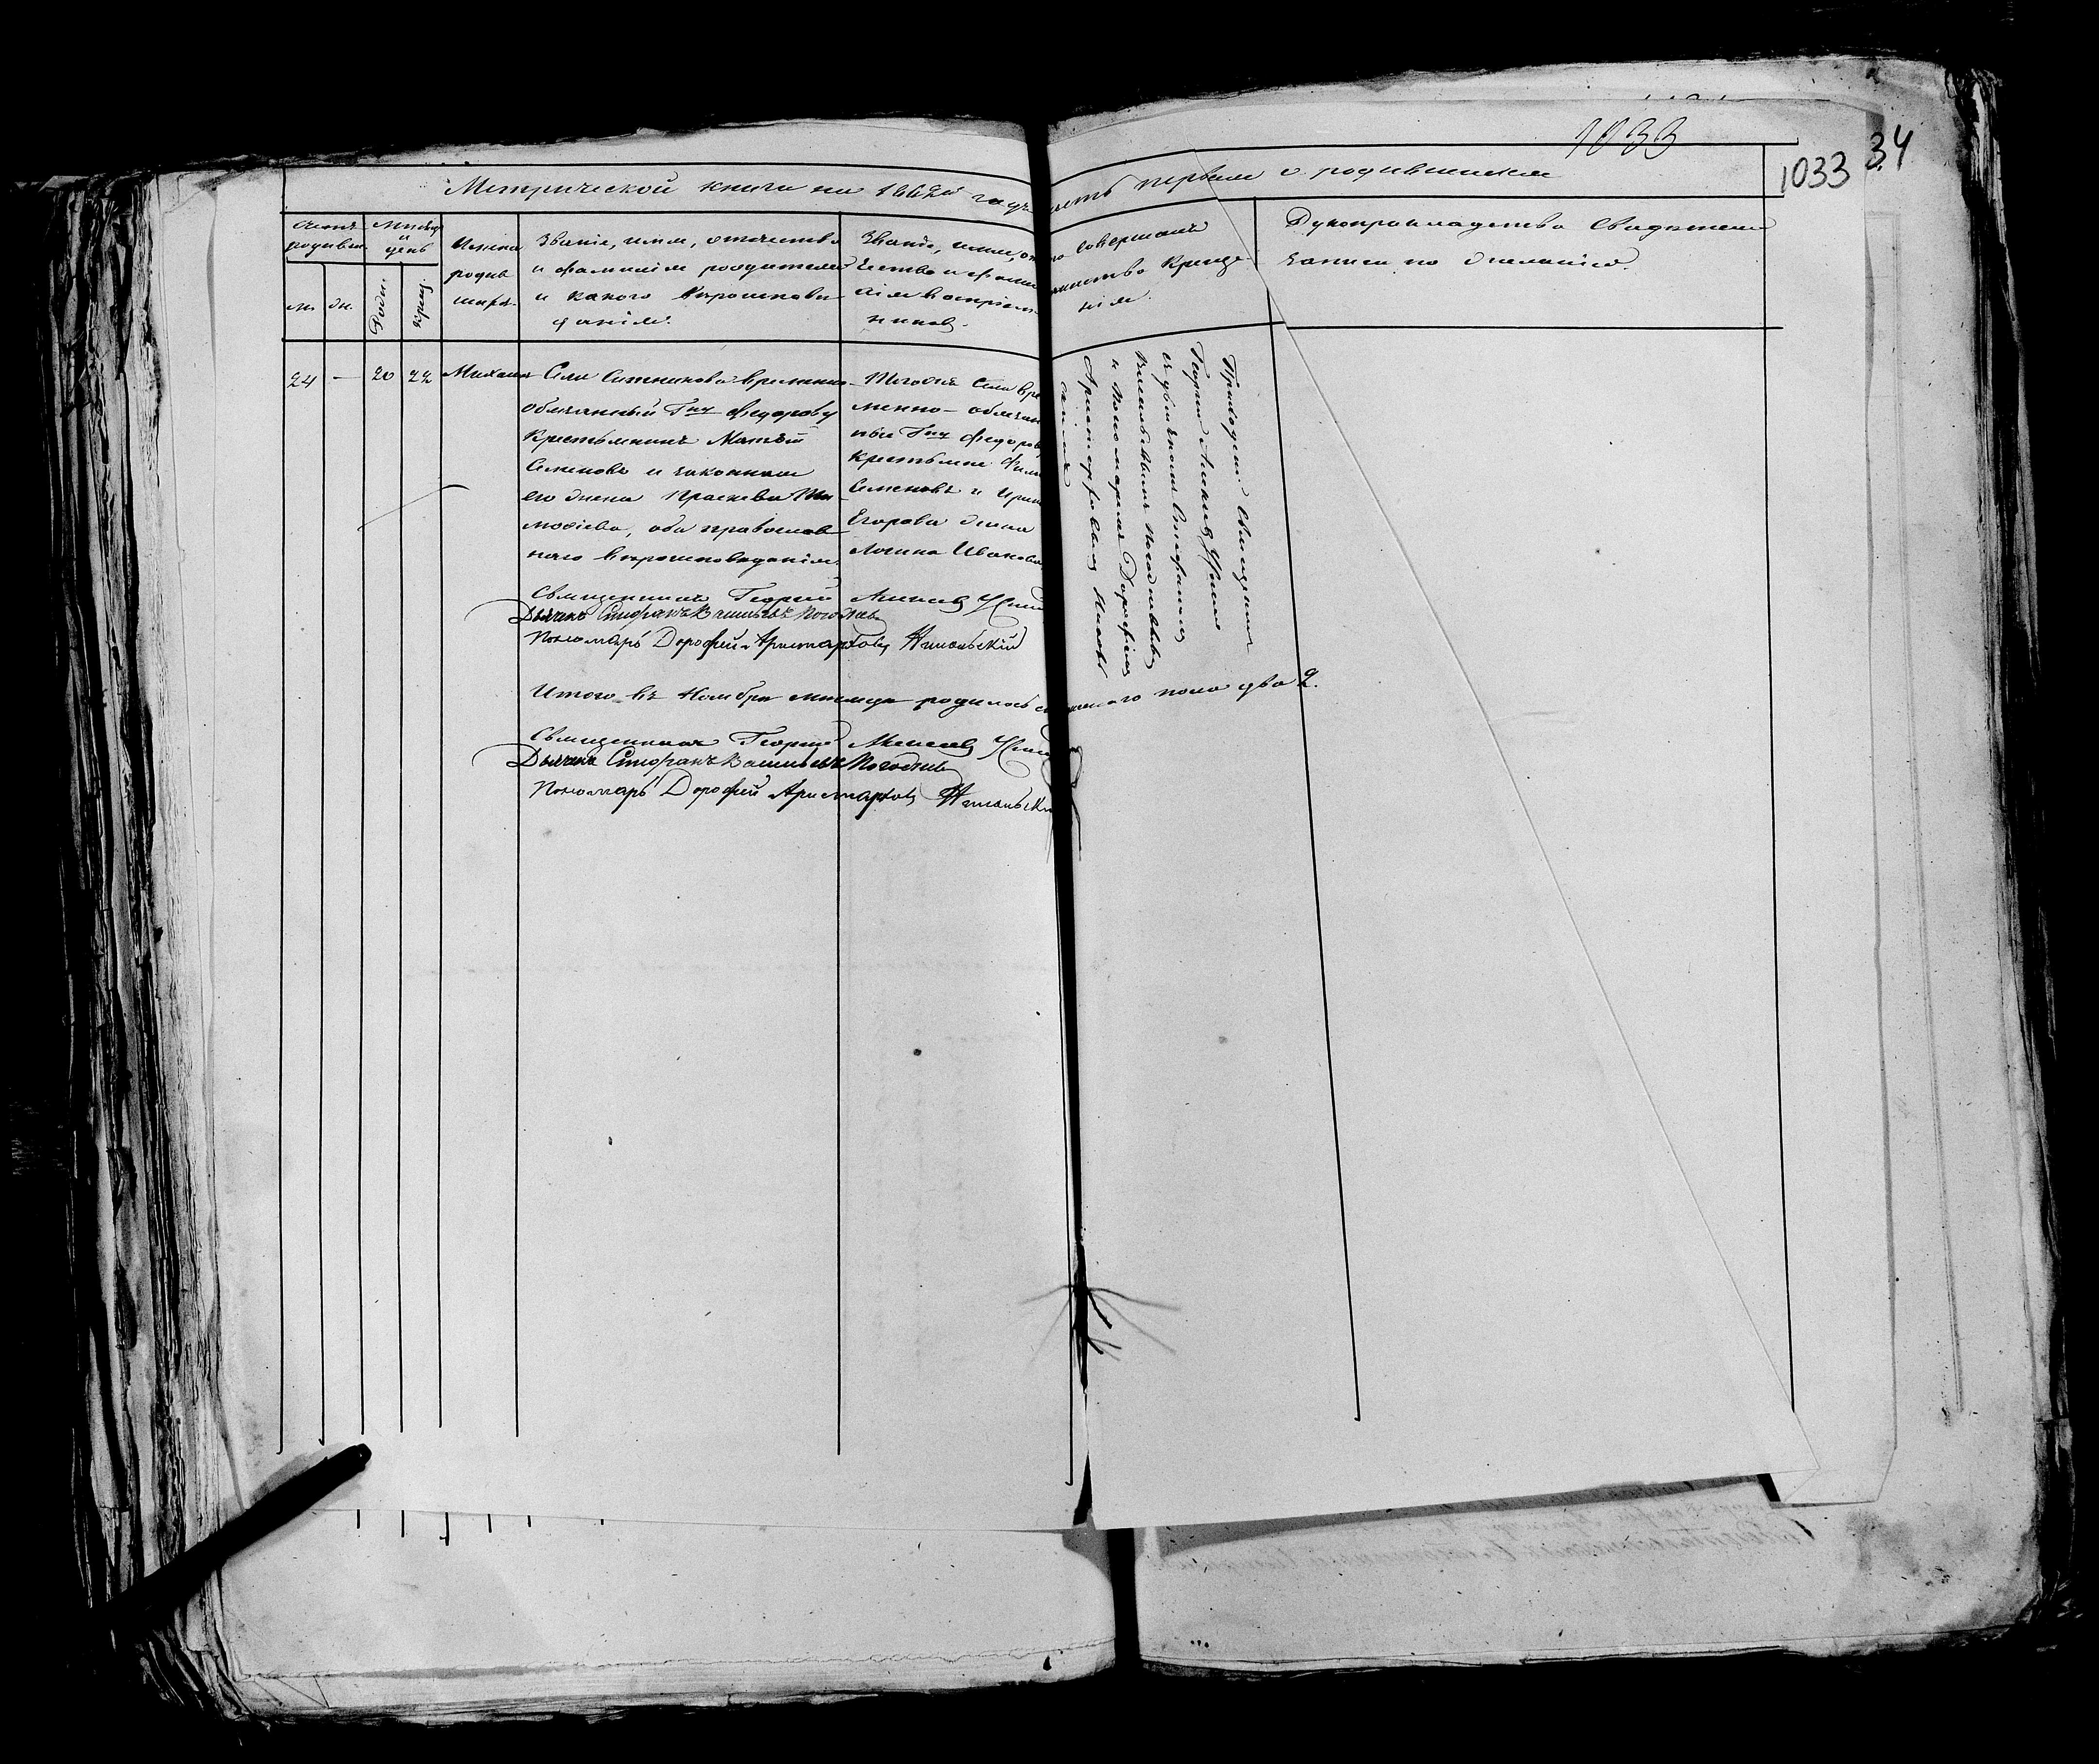 1033
1033 34
Метрической книги на 1862й годъ часть первая о родившихся
Счетъ родивш.
м. ж.
Мѣсяцъ и день
Рожд.
Крещ.
Имена
родив
шихъ
Званіе, имя, отчество
и фамилія родителей
и какого вѣроисповѣ
данія.
Званіе, имя, от
чество и фами
лія воспріем
никовъ.
совершалъ
таинство Креще
нія.
Рукоприкладство свидѣтелей
записи по желанію.
24 — 20 22 Михаилъ
Села Ситникова временно
обязанный Гну Федорову
Крестьянинъ Матвѣй
Семеновъ и законная
его жена Праскева Ти
мофѣева, оба православ
наго вѣроисповѣданія.
Тогожъ Села вре
менно-обязан
ные Гну Федорову
крестьяне
Семеновъ и
Егорова жена
Ивановна
Приходскій Священникъ
Георгій Алексѣевъ
съ дьячкомъ Стефаномъ
Васильевымъ Погодаевымъ
и Пономаремъ Дорофѣемъ
Аристарховымъ
Священникъ Георгій Алексѣевъ
Дьячекъ Стефанъ Васильевъ Погодаевъ
Пономарь Дорофей Аристарховъ
Итого въ Ноябрѣ мѣсяцѣ родилось мужескаго пола два 2.
Священникъ Георгій Алексѣевъ
Дьячекъ Стефанъ Васильевъ Погодаевъ
Пономарь Дорофей Аристарховъ